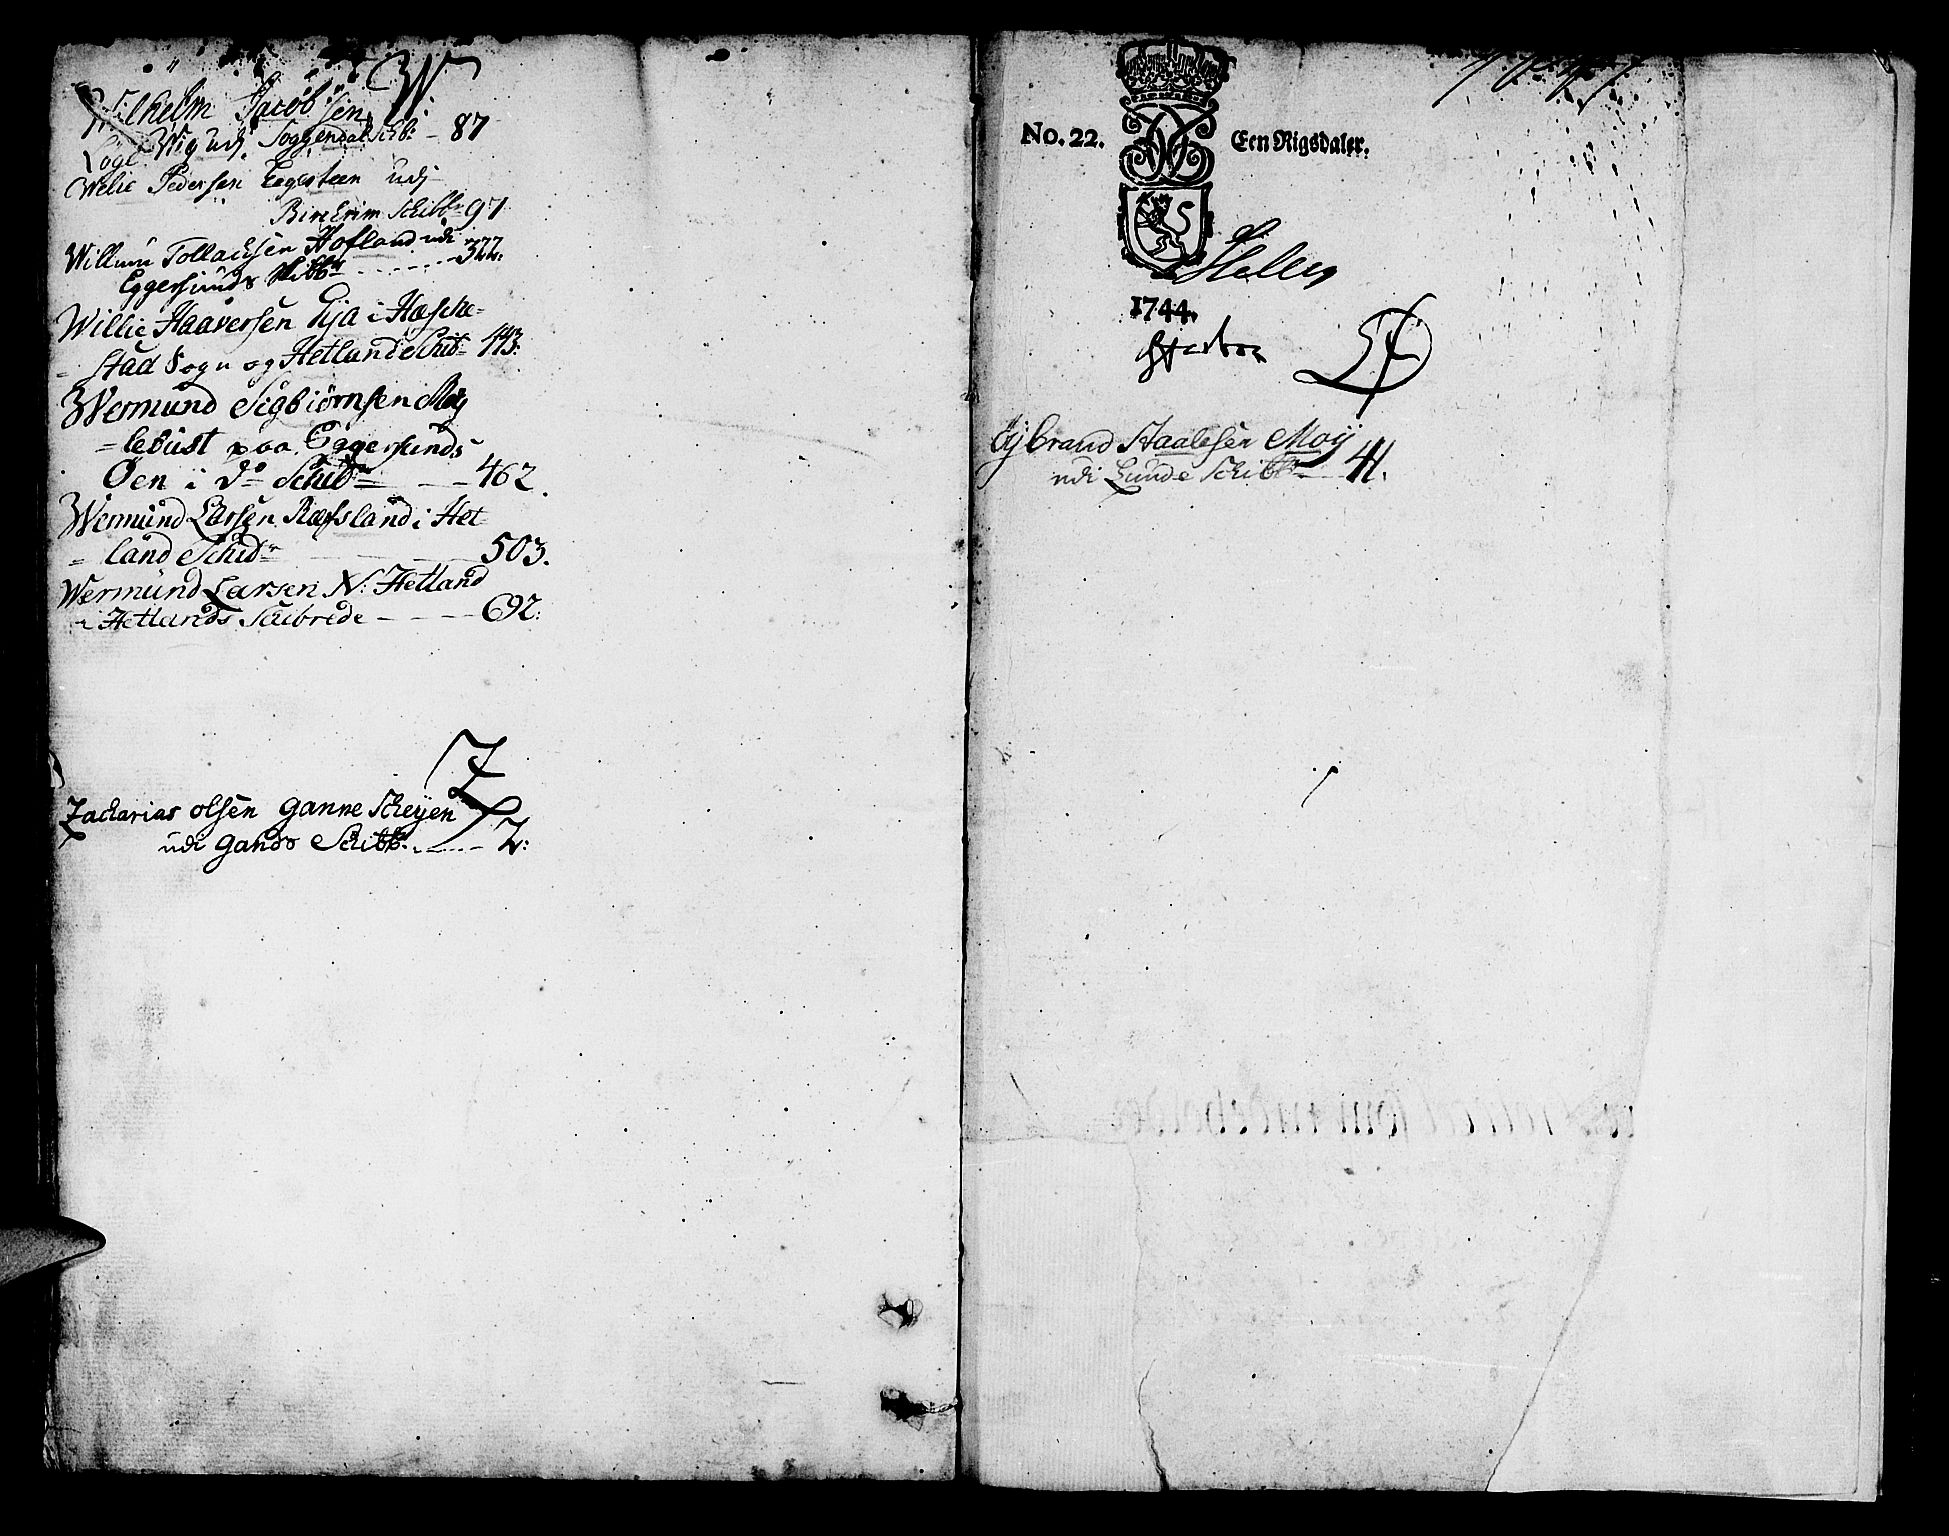 W:
Wilhelm Jacobsen
Wig udj Soggendal Schb: – 87
Welie Pedersen Eegesteen udj
Birchrim Schibbr 97
Willum Tollachsen Hofland udi
Eggersunds Skibbr - - - - - - 322:
Willie Haaversen Eja i Hæsche=
= stad Sogn og Hetland Schib= 443:
Wermund Sigbiörnsen Møg
= lebust paa Eggersunds
Öen i do Schibr = - - 462.
Wermund Larsen Ræfsland i Het=
= land Schibr - - - 503.
Wermund Larsen N: Hetland
i Hetlands Scibrede - - - - 692:
Z
Zacharias olsen Ganne Scheyen
udi Gands Schibbr. - - - - 2:
No. 22. Een Rigsdaler.
5
1744.
Sybrand Staalesen Moy
udi Lunde Schibbr - - 41.